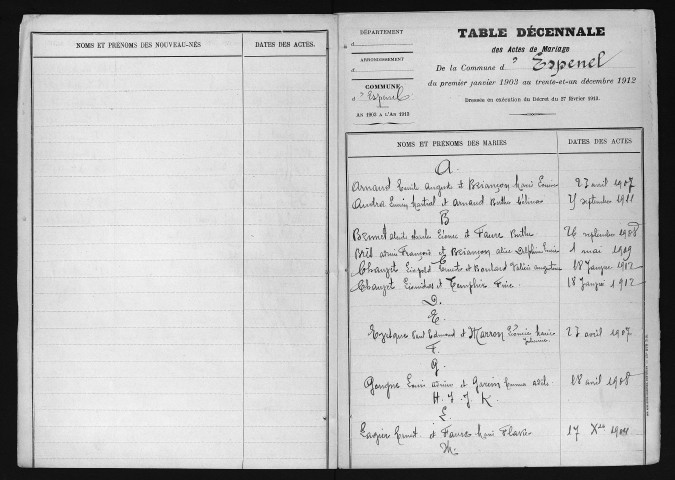 NOMS ET PRÉNOMS DES NOUVEAU-NÉS
DATES DES ACTES.
DÉPARTEMENT
d
ARRONDISSEMENT
d
COMMUNE
d'Espenel
AN 1903 A L'AN 1912
TABLE DÉCENNALE
des Actes de Mariage
De la Commune d'Espenel
du premier janvier 1903 au trente-et-un décembre 1912
Dressée en exécution du Décret du 27 février 1913.
NOMS ET PRÉNOMS DES MARIÉS
DATES DES ACTES
A.
Arnaud Emile August et Besiançon Marie 27 avril 1907
Andra et Arnaud Berthe 25 septembre 1911
B
Bennet et Faure Berthe 26 septembre 1908
François et Besiançon Delphine 1 mai 1909
C
Chauzet Léopold et Boulard 18 Janvier 1912
Chauzet et Templier 18 Janvier 1912
D.
E.
Eyzique Paul Edmond et Marron Marie 27 avril 1907
F.
G.
Gougne Louis et Garcin Emma 28 avril 1908
H. I. J. K.
L.
Lagier Ernest et Faure Marie Flavie 17 Xbre
M.